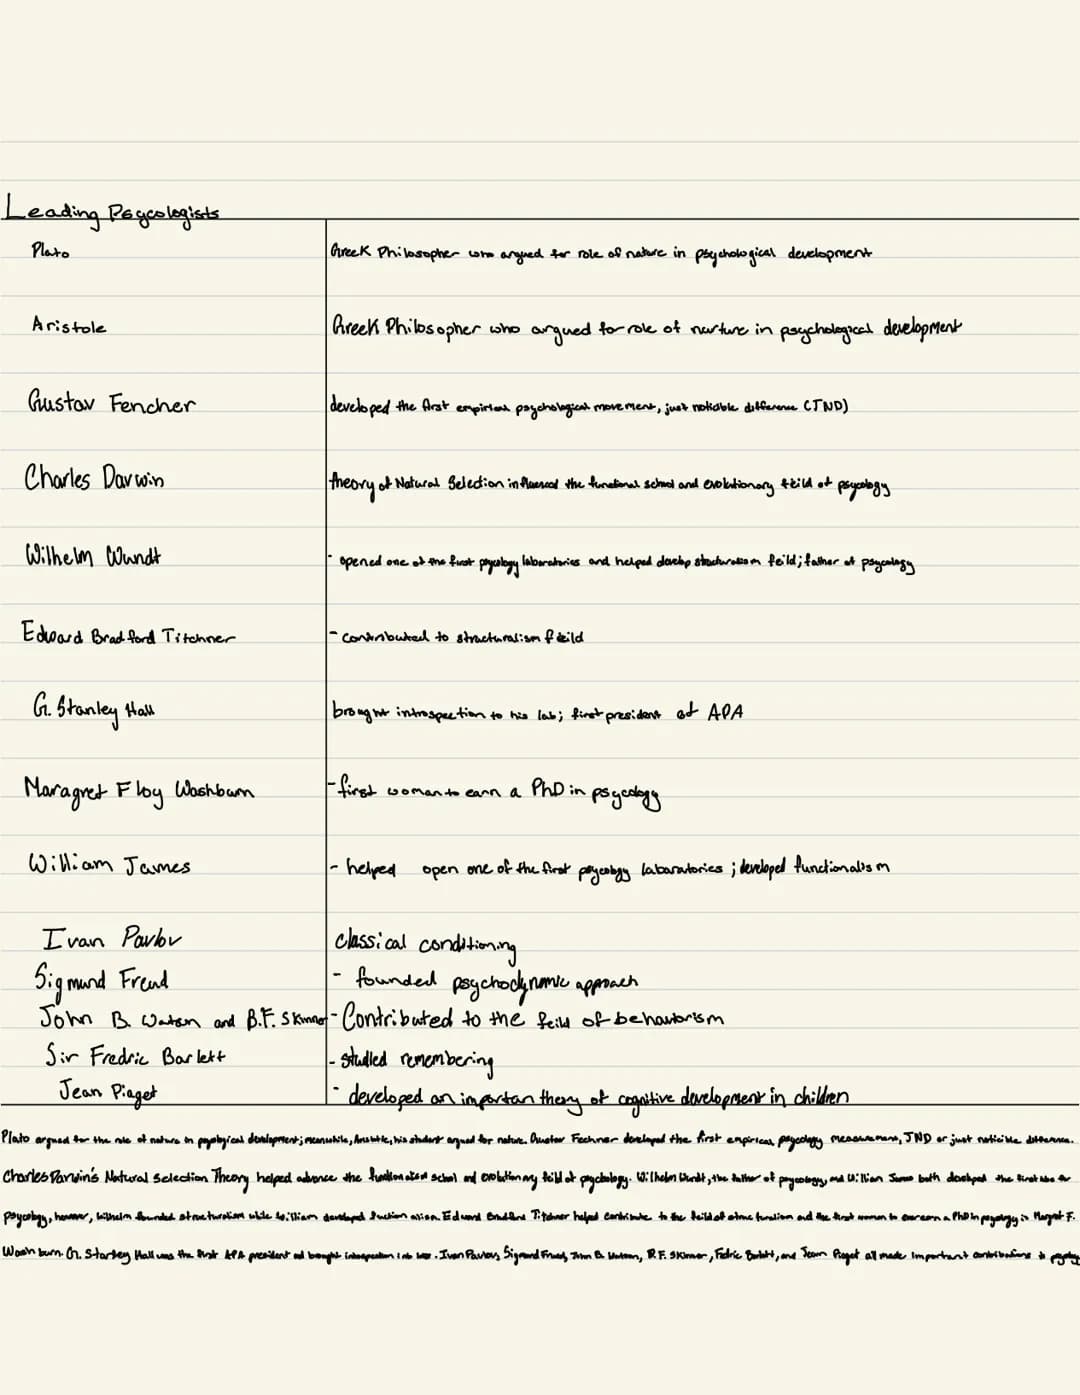 Leading Psycologists
Plato Greek Philosopher who argued for role of nature in psychological development
Aristole Greek Philosopher who argued for role of nurture in psychological development
Gustav Fencher developed the first empirical psychological movement, just noticible difference (JND)
Charles Darwin theory of Natural Selection influenced the functional school and evolutionary feild of psycology
Wilhelm Wundt - opened one of the first psycology laboratories and helped develop structuralism feild; father of psycology
Edward Bradford Titchner - contributed to structuralism feild
G. Stanley Hall brought introspection to his lab; first president of APA
Maragret Floy Washburn - first woman to earn a PhD in psycology
William James - helped open one of the first psycology labaratories ; developed functionalism
Ivan Pavlov classical conditioning
Sigmund Freud - founded psychodynamic approach
John B. Watson and B.F. Skinner - Contributed to the feild of behaviorism
Sir Fredric Barlett - studied remembering
Jean Piaget - developed an importan theory of cognitive development in children
Plato argued for the role of nature in development; meanwhile, his student argued for nature. Gustav Fechner developed the first empirical psycology measurement, JND or just noticible difference.
Charles Darwin's Natural Selection Theory helped advance the school and evolutionary feild of psychology. Wilhelm Wundt, the father of psycology, and William James both developed the first labs for
psycology, however, Wilhelm founded structuralism while William developed Edward Bradford Titchner helped contribute to the feild of structuralism and the first woman to earn a PhD in psycology is Margret F.
Washburn. G. Stanley Hall was the first APA president and brought introspection into labs. Ivan Pavlov, Sigmund Freud, John B. Watson, B.F. Skinner, Fedric Bartlett, and Jean Piaget all made important contributions to